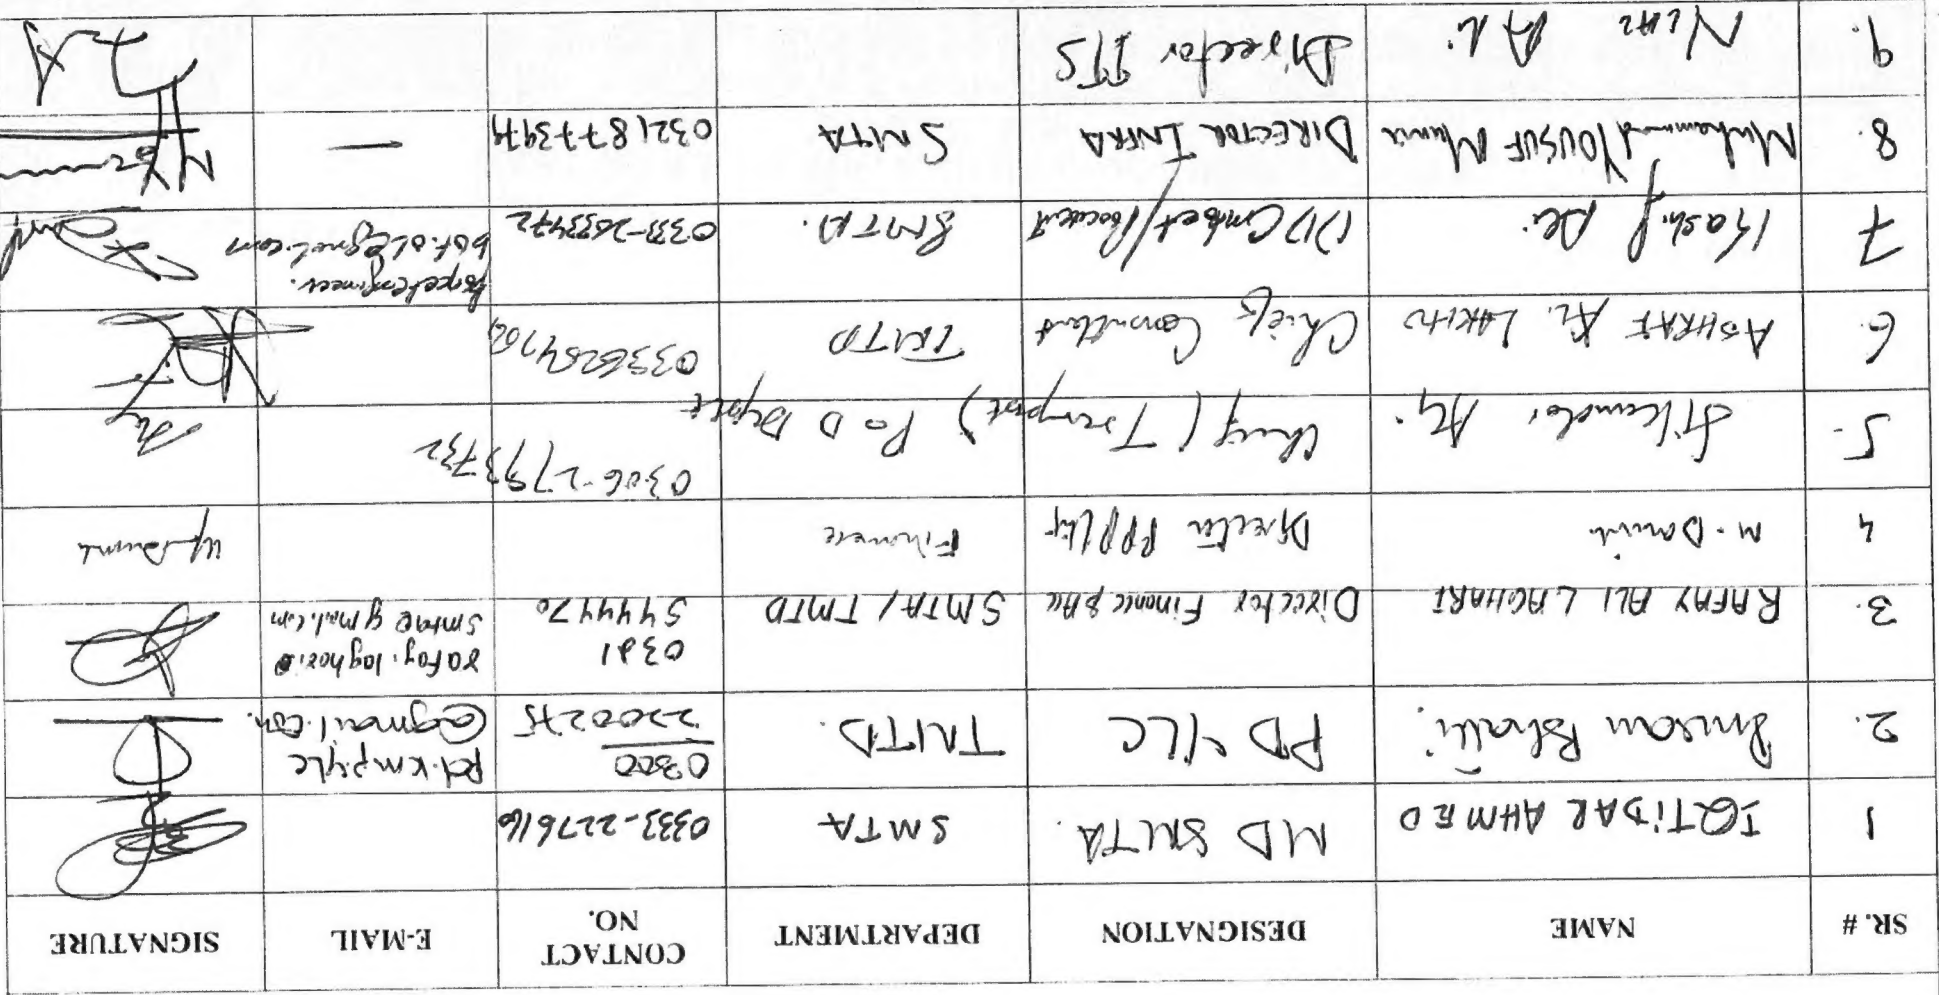 SR. # NAME DESIGNATION DEPARTMENT CONTACT NO. E-MAIL SIGNATURE
1 IQTIDAR AHMED MD SMTA. SMTA 0333-2276116
2. PD YLC TMTD. 0300 2200275 Pd.kmpylc @gmail.com.
3. RAFAY ALI LAGHARI Director Finance & Acc SMTA/TMTD 0301 5444470 rafay.laghari smta@gmail.com
4 M. Danish Director PPP Finance
5. Sikander Ali. Chief (Transport) P&D Deptt 0306-2793732
6. ASHRAF Chief Consultant TMTD
7 Kashif Ali DD Contract/ SMTA. 0333-2633472
8. Muhammad YOUSUF DIRECTOR INFRA SMTA 03218773974 —
9. Niaz Ali Director ITS